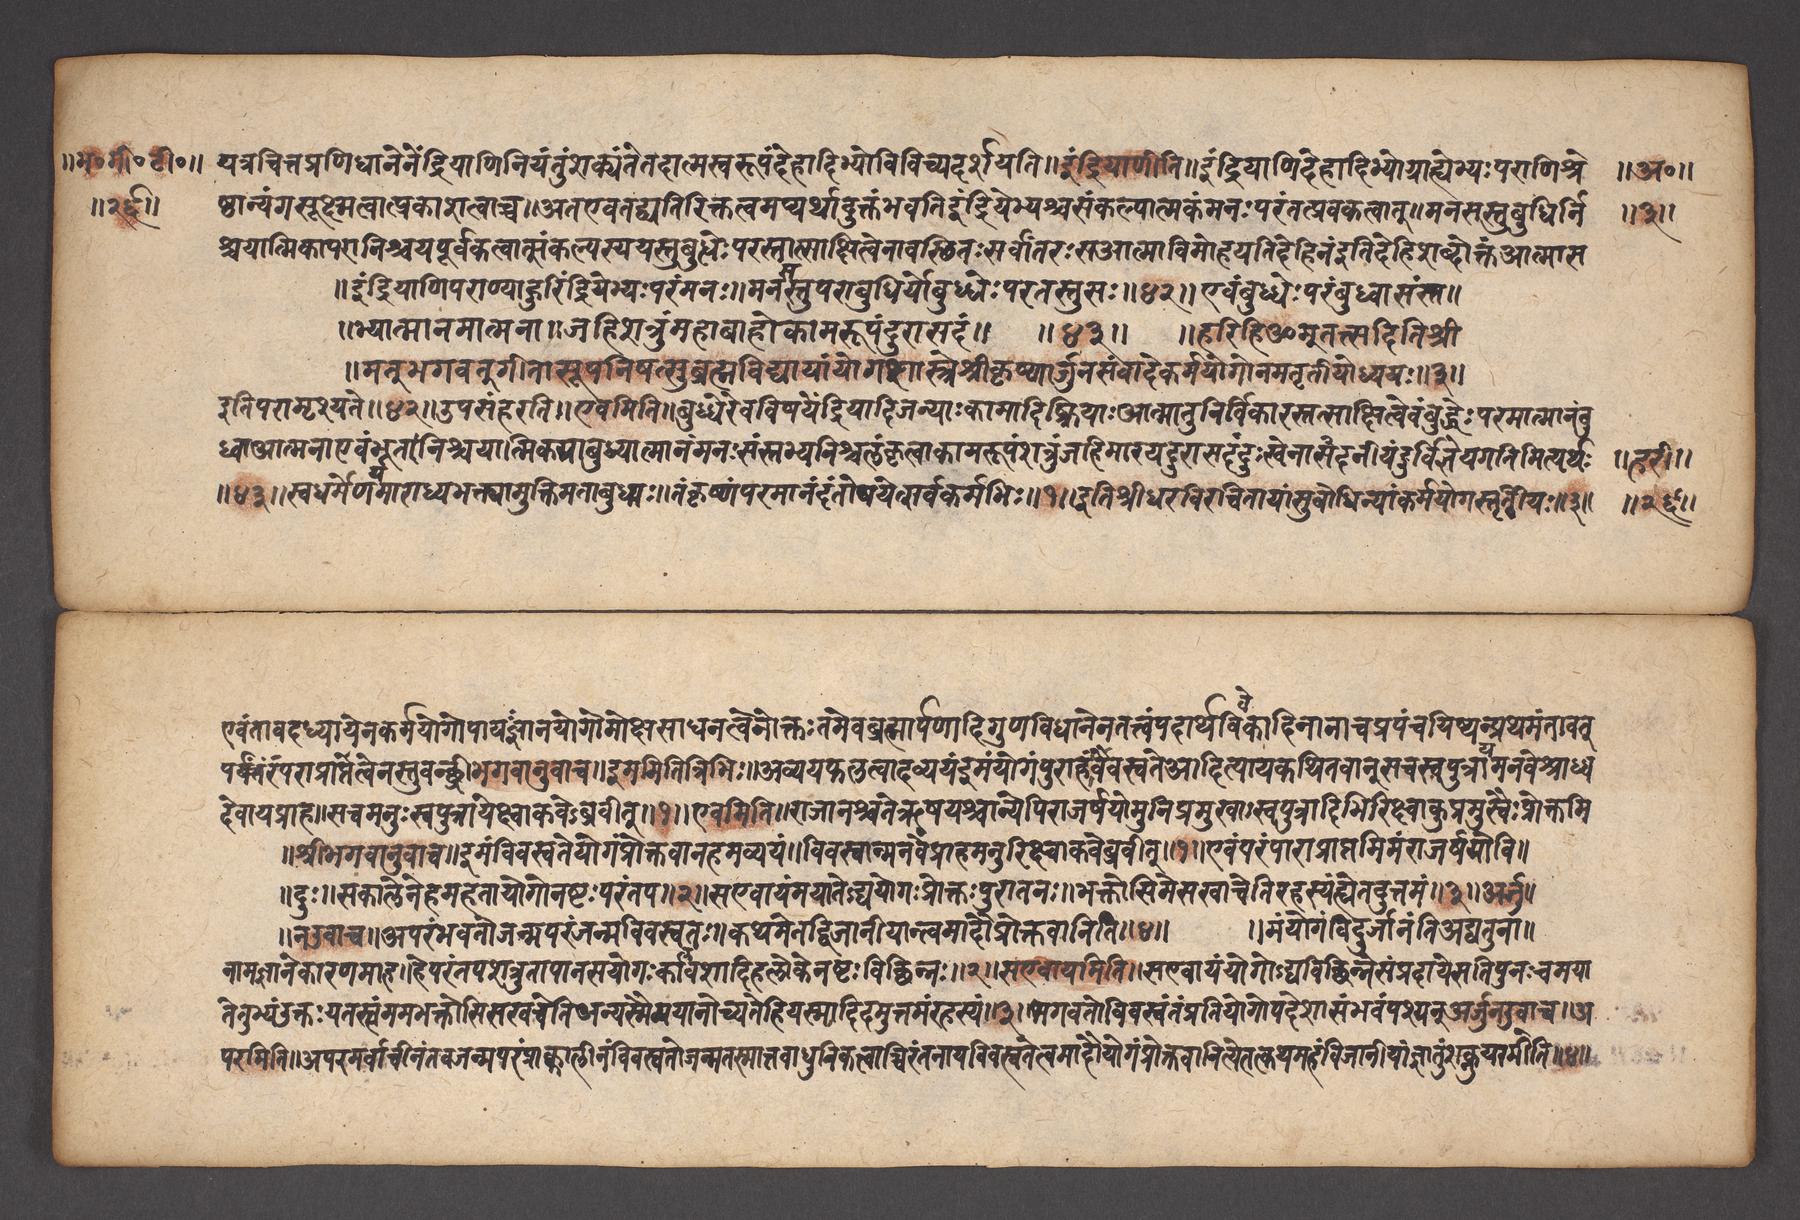 ॥भ०गी०टी०॥ यत्रचित्तप्रणिधानेनेंद्रियाणिनियंतुंशक्यंतेतदात्मस्वरूपंदेहादिभ्योविविच्यदर्शयति॥इंद्रियाणीति॥इंद्रियाणिदेहादिभ्योग्राह्येभ्यःपराणिश्रे ॥अ०॥
॥२६॥ ष्ठान्यंगसूक्ष्मत्वात्प्रकाशत्वाच्च॥अतएवतद्व्यतिरिक्तत्वमप्यर्थादुक्तंभवतिइंद्रियेभ्यश्चसंकल्पात्मकंमनःपरंतत्प्रवक्तत्वात्॥मनसस्तुबुधिर्नि ॥३॥
श्चयात्मिकापरानिश्चयपूर्वकत्वात्संकल्पस्ययस्तुबुधेःपरस्तात्साक्षित्वेनावस्थितःसर्वांतरःसआत्माविमोहयतिदेहिनंइतिदेहिशब्दोक्तआत्मास
॥इंद्रियाणिपराण्याहुरिंद्रियेभ्यःपरंमनः॥मनसस्तुपराबुधिर्योबुध्धेःपरतस्तुसः॥४२॥एवंबुध्धेःपरंबुध्वासंस्त॥
॥भ्यात्मानमात्मना॥जहिशत्रुंमहाबाहोकामरूपंदुरासदं॥ ॥४३॥ ॥हरिहिॐमूतत्सदितिश्री
॥मनुभगवनुगीतासूपनिषत्सुब्रह्मविद्यायांयोगशास्त्रेश्रीकृष्णार्जुनसंवादेकर्मयोगोनमतृतीयोध्ययः॥३॥
इतिपरामृश्यते॥४२॥उपसंहरति॥एवमिति॥बुध्धेरेवविषयेंद्रियादिजन्याःकामादिक्रियाःआत्मातुनिर्विकारस्तत्साक्षित्येवंबुद्धेःपरमात्मानंबु
ध्वाआत्मनाएवंभूतांनिश्चयात्मिकयाबुध्यात्मानंमनःसंस्तभ्यनिश्चलंकृत्वाकामरूपंशत्रुंजहिमारयदुरासदंदुःखेनासदनीयंदुर्विज्ञेयगतिमित्यर्थः ॥हरी॥
॥४३॥स्वधर्मेणर्यमाराध्यभक्त्यामुक्तिमताबुधाः॥तंकृष्णंपरमानंदंतोषयेत्सर्वकर्मभिः॥१॥इतिश्रीधरविरचितायांसुबोधिन्यांकर्मयोगस्तृतीयः॥३॥ ॥२६॥
एवंतावदध्यायेनकर्मयोगोपायज्ञानयोगोमोक्षसाधनत्वेनोक्तःतमेवब्रह्मार्पणादिगुणविधानेनतत्त्वंपदार्थविवेकादिनानाचप्रपंचयिष्यन्प्रथमंतावत्
परंपराप्राप्तत्वेनस्तुवन्श्रीभगवानुवाच॥इममितित्रिभिः॥अव्ययफलत्वादव्ययंइमंयोगंपुराहंविवस्वतेआदित्यायकथितवान्सचस्वपुत्रायमनवेश्राध्ध
देवायप्राह॥सचमनुःस्वपुत्रायेक्ष्वाकवेऽब्रवीत्॥१॥एवमिति॥राजानश्चतेऋषयश्चान्येपिराजर्षयोमुनिप्रमुखाःस्वपुत्रादिभिरिक्ष्वाकुप्रमुखैःप्रोक्तमि
॥श्रीभगवानुवाच॥इमंविवस्वतेयोगंप्रोक्तवानहमव्ययं॥विवस्वान्मनवेप्राहमनुरिक्ष्वाकवेब्रवीत्॥१॥एवंपरंपाराप्राप्तमिमंराजर्षयोवि॥
॥दुः॥सकालेनेहमहतायोगोनष्टःपरंतप॥२॥सएवायंमयातेद्ययोगःप्रोक्तःपुरातनः॥भक्तोसिमेसखाचेतिरहस्यंह्येतदुत्तमं॥३॥अर्जु॥
॥नउवाच॥अपरंभवतोजन्मपरंजन्मविवस्वतः॥कथमेतद्विजानीयान्त्वमादौप्रोक्तवानिति॥४॥ ॥मंयोगंविदुर्जानंतिअद्यतना॥
नामज्ञानेकारणमाह॥हेपरंतपशत्रुतापानसयोगःकालवशादिहलोकेनष्टःविच्छिन्नः॥२॥सएवायमिति॥सएवायंयोगोऽद्यविच्छिन्नेसंप्रदायेसतिपुनःचमया
तेतुभ्यंउक्तःयतस्त्वंममभक्तोसिसखाचेतिअन्यस्मैमयानोच्यतेहियस्मादिदमुत्तमंरहस्यं॥३॥भगवतोविवस्वंतंप्रतियोगोपदेशासंभवंपश्यन्अर्जुनउवाच॥अ
परमिति॥अपरमर्वाचीनंतवजन्मपरंप्राक्कालीनंविवस्वतोजन्मतस्मात्तवाधुनिकत्वाच्चिरंतनायविवस्वतेत्वमादौयोगंप्रोक्तवानित्येतत्कथमहंविजानीयांज्ञातुंशक्नुयामीति॥४॥